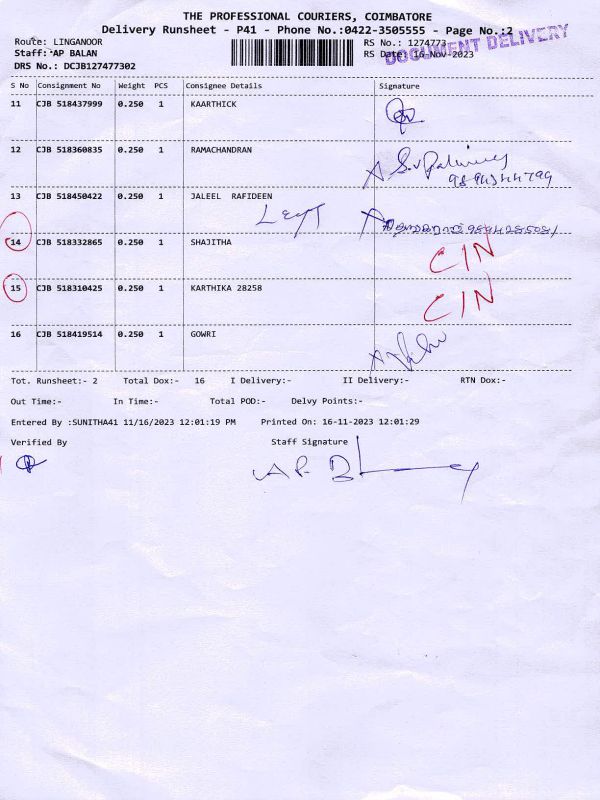 THE PROFESSIONAL COURIERS, COIMBATORE
Delivery Runsheet - P41 - Phone No.:0422-3505555 - Page No.:2
Route: LINGANOOR
RS No.: 1274773
DOCUMENT DELIVERY
Staff: AP BALAN
RS Date: 16-Nov-2023
DRS No.: DCJB127477302
S No Consignment No Weight PCS Consignee Details Signature
11 CJB 518437999 0.250 1 KAARTHICK
12 CJB 518360835 0.250 1 RAMACHANDRAN
13 CJB 518450422 0.250 1 JALEEL RAFIDEEN
14 CJB 518332865 0.250 1 SHAJITHA CIN
15 CJB 518310425 0.250 1 KARTHIKA 28258 CIN
16 CJB 518419514 0.250 1 GOWRI
Tot. Runsheet:- 2 Total Dox:- 16 I Delivery:- II Delivery:- RTN Dox:-
Out Time:- In Time:- Total POD:- Delvy Points:-
Entered By :SUNITHA41 11/16/2023 12:01:19 PM Printed On: 16-11-2023 12:01:29
Verified By Staff Signature